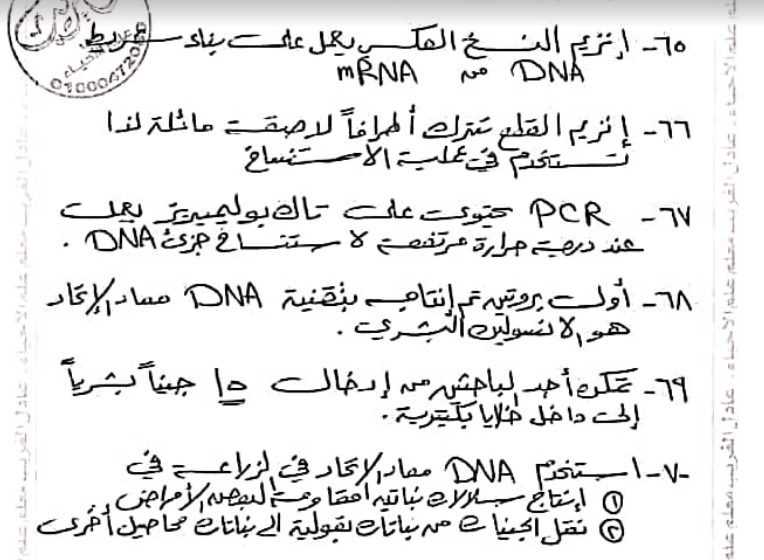 ٦٥- إنزيم النسخ العكسى يعمل على بناء شريط
DNA من mRNA
٦٦- إنزيم القطع تترك أطرافاً لاصقة مائلة لذا
تستخدم فى عملية الاستنساخ
٦٧- PCR يحتوى على تاك بوليميريز يعمل
عند درجة حرارة مرتفعة لاستنساخ جزئ DNA .
٦٨- أول بروتين تم إنتاجه بتقنية DNA معاد الإتحاد
هو الانسولين البشرى .
٦٩- تمكن أحد الباحثين من إدخال ١٥ جيناً بشرياً
إلى داخل خلايا بكتيرية .
٧٠- استخدم DNA معاد الإتحاد فى الزراعة فى
① إنتاج سلالات نباتية مقاومة لبعض الأمراض
② نقل الجينات من نباتات بقولية الى نباتات محاصيل أخرى